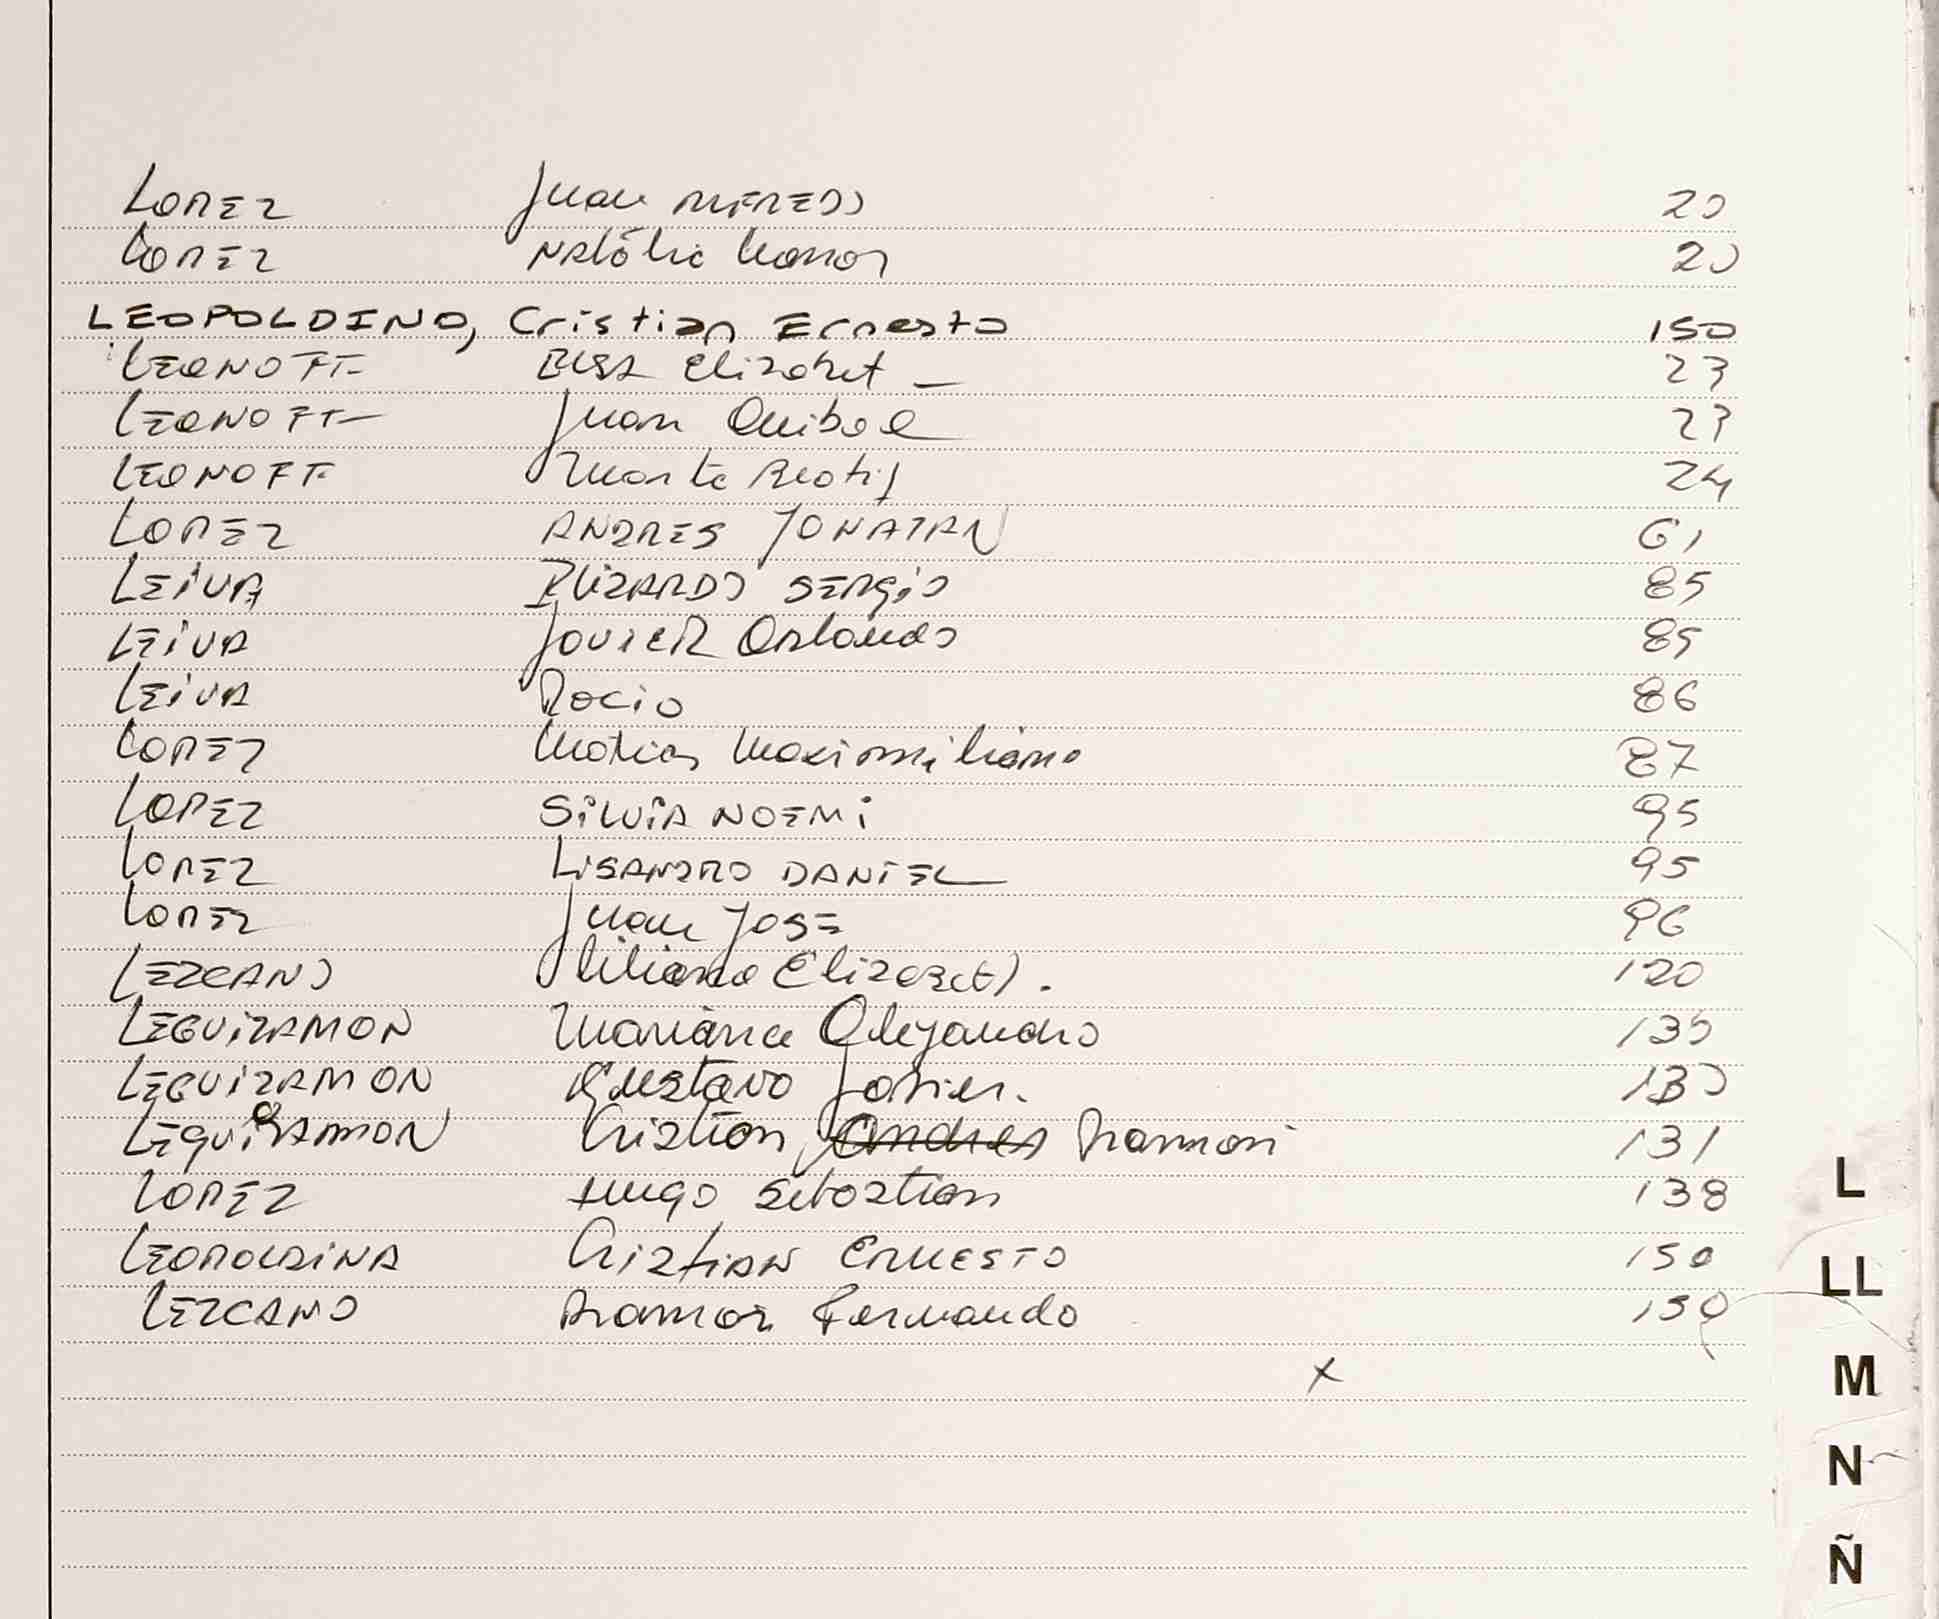 LOPEZ Juan ALFREDO 20
LOPEZ Natália Leonor 20
LEOPOLDINO, Cristian Ernesto 150
LEONOFF ELSA Elizabet 23
LEONOFF Juan Anibal 23
LEONOFF Marta Beatriz 24
LOPEZ ANDRES JONATAN 61
LEIVA ELIZARDO SERGIO 85
LEIVA JAVIER Orlando 85
LEIVA Rocio 86
LOPEZ Matias Maximiliano 87
LOPEZ SILVIA NOEMI 95
LOPEZ LISANDRO DANIEL 95
LOPEZ Juan JOSE 96
LEZCANO Liliana Elizabet 120
LEGUIZAMON Mariana Alejandro 130
LEGUIZAMON Gustavo Javier. 130
LEGUIZAMON Cristian Andres Ramon 131
LOPEZ Hugo Sebastian 138
LEOPOLDINA Cristian ERNESTO 150
LEZCANO Ramon Fernando 150
x
L
LL
M
N
Ñ